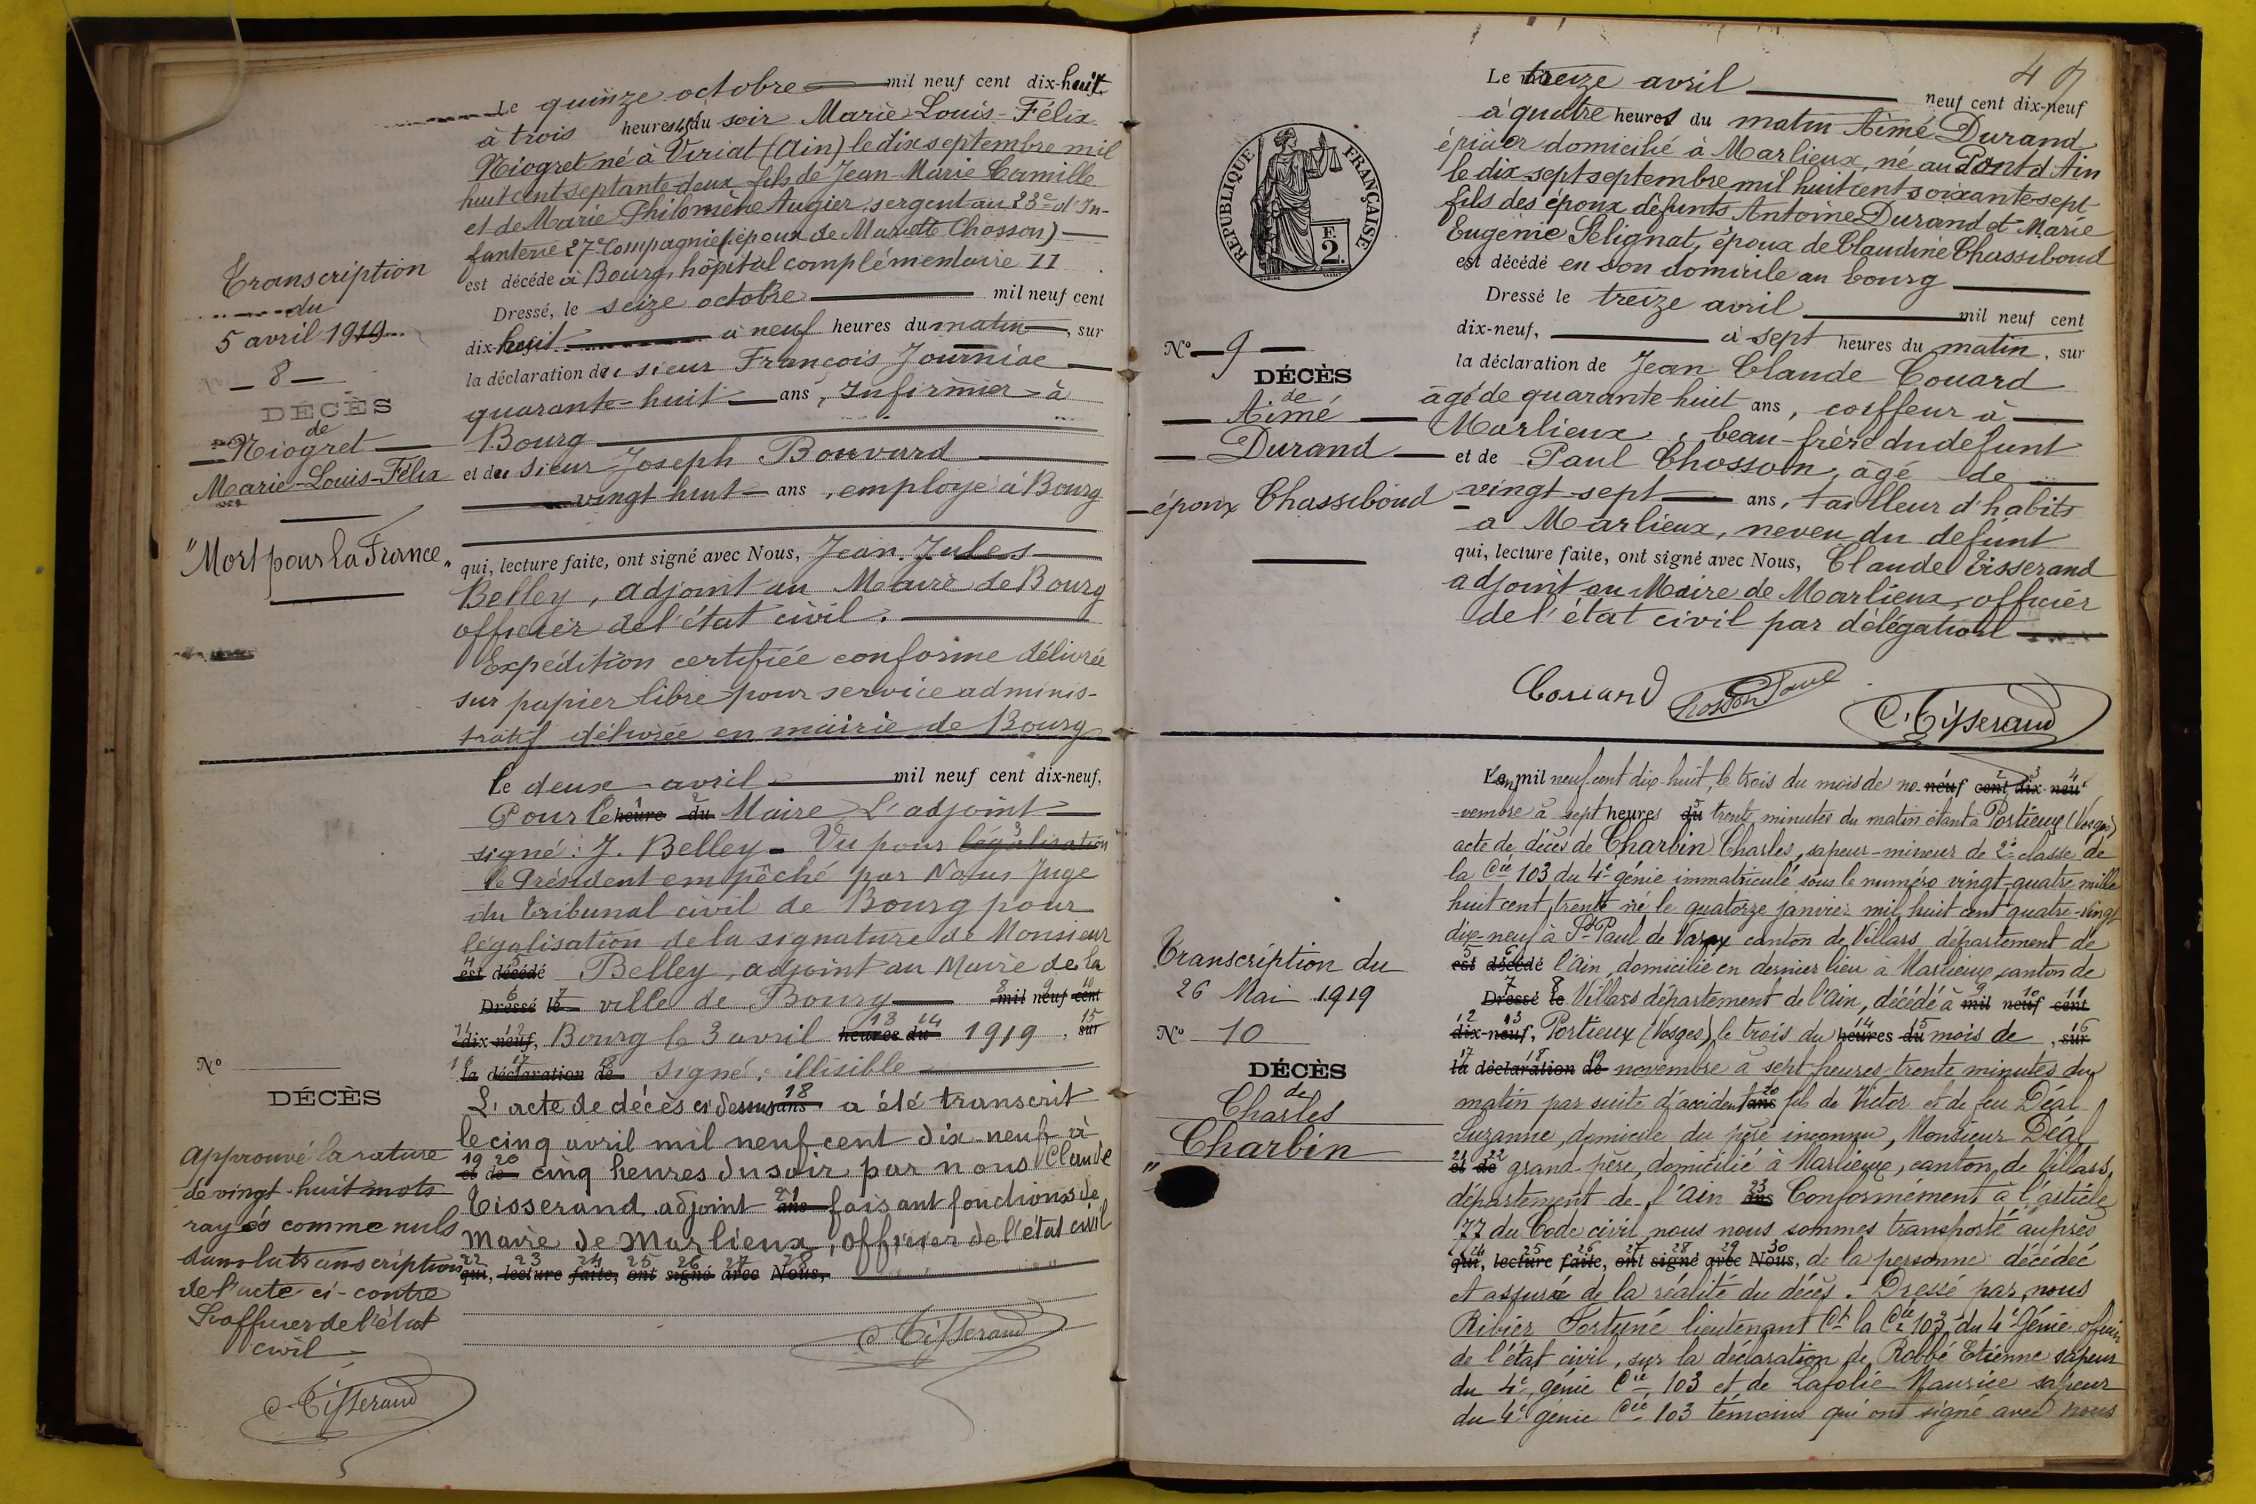 Le quinze octobre mil neuf cent dix-huit
à trois heures du soir Marie Louis-Félix
Niogret né à Viriat (Ain) le dix septembre mil
huit cent septante-deux fils de Jean-Marie Camille
et de Marie Philomène Augier, sergent au 23e d'In-
fanterie 27e Compagnie (époux de Mariette Chosson)
est décédé à Bourg, hôpital complémentaire 11
Dressé, le seize octobre mil neuf cent
dix-huit à neuf heures du matin, sur
la déclaration de sieur François Journiac
quarante-huit ans, Infirmier à
Bourg
et de sieur Joseph Bouvard
vingt huit ans, employé à Bourg
qui, lecture faite, ont signé avec Nous, Jean. Jules
Belley, adjoint au Maire de Bourg
officier de l'état civil.
Expédition certifiée conforme délivrée
sur papier libre pour service adminis-
tratif délivrée en mairie de Bourg
Transcription
du
5 avril 1919
8
DÉCÈS
de
Niogret
Marie-Louis-Félix
"Mort pour la France"
le deux avril mil neuf cent dix-neuf,
Pour le heure du Maire L'adjoint
signé: J. Belley - Vu pour légalisation
le Président empêché par Nous Juge
du tribunal civil de Bourg pour
légalisation de la signature de Monsieur
4 5 est décédé Belley, adjoint au Maire de la
6 7 Dressé le ville de Bourg 8 9 10 mil neuf cent
11 12 dix-neuf, Bourg le 3 avril 13 14 heures du 1919, 15 sur
16 17 18 la déclaration de signé: illisible
L'acte de décès ci dessus 18 ans a été transcrit
le cinq avril mil neuf cent dix-neuf à
19 20 et de cinq heures du soir par nous Claude
Tisserand adjoint 21 ans faisant fonctions de
Maire de Marlieux, officier de l'état civil
22 23 24 25 26 27 28
qui, lecture faite, ont signé avec Nous,
C. Tisserand
No
DÉCÈS
Approuvé la rature
de vingt-huit mots
rayés comme nuls
dans la transcription
de l'acte ci-contre
L'officier de l'état
civil
C. Tisserand
Le treize avril neuf cent dix-neuf
à quatre heures du matin Aimé Durand
épicier domicilié à Marlieux, né au Pont d'Ain
le dix sept septembre mil huit cent soixante sept
fils des époux défunts Antoine Durand et Marie
Eugénie Selignat, époux de Claudine Chassiboud
est décédé en son domicile au bourg
Dressé le treize avril mil neuf cent
dix-neuf, à sept heures du matin, sur
la déclaration de Jean Claude Couard
âgé de quarante huit ans, coiffeur à
Marlieux, beau-frère du défunt
et de Paul Chosson, âgé de
vingt-sept ans, tailleur d'habits
à Marlieux, neveu du défunt
qui, lecture faite, ont signé avec Nous, Claude Tisserand
adjoint au Maire de Marlieux, officier
de l'état civil par délégation
Couard Chosson Paul
C. Tisserand
RÉPUBLIQUE FRANÇAISE
F.
2.
No 9
DÉCÈS
de
Aimé
Durand
époux Chassiboud
L'an mil neuf cent dix-huit, le trois du mois de no- neuf cent dix-neuf
-vembre à sept heures du trente minutes du matin étant à Portieux (Vosges)
acte de décès de Charbin Charles, sapeur-mineur de 2e classe de
la Cie 103 du 4e génie immatriculé sous le numéro vingt-quatre mille
huit cent trente né le quatorze janvier mil huit cent quatre-vingt
dix-neuf à St Paul de Varax canton de Villars département de
5 6 est décédé l'Ain, domicilié en dernier lieu à Marlieux, canton de
7 8 Dressé le Villars département de l'Ain, décédé à 9 10 11 mil neuf cent
12 13 dix-neuf, Portieux (Vosges) le trois du 14 15 heures du mois de, 16 sur
17 18 19 la déclaration de novembre à sept heures trente minutes du
matin par suite d'accident 20 ans fils de Victor et de feu Déal
Suzanne, domicile du père inconnu, Monsieur Déal
21 22 et de grand père, domicilié à Marlieux, canton de Villars,
département de l'Ain 23 ans Conformément à l'article
77 du Code civil nous nous sommes transporté auprès
24 25 26 27 28 29 30
qui, lecture faite, ont signé avec Nous, de la personne décédée
et assuré de la réalité du décès. Dressé par nous
Ribier Fortuné lieutenant Ct la Cie 103 du 4e Génie officier
de l'état civil, sur la déclaration de Robbé Etienne sapeur
du 4e génie Cie 103 et de Lafolie Maurice sapeur
du 4e génie Cie 103 témoins qui ont signé avec nous
Transcription du
26 Mai 1919
No 10
DÉCÈS
de
Charles
Charbin